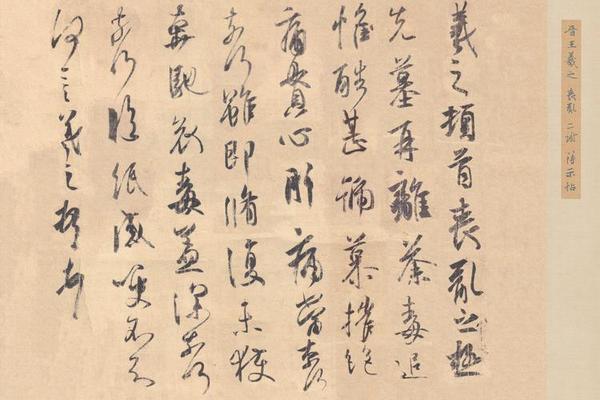 羲之頓首喪亂之極
先墓再離荼毒追
惟酷甚號慕摧絕
痛貫心肝痛當奈何
奈何雖即脩復未獲
奔馳哀毒益深奈何
奈何臨紙感哽不知
何言羲之頓首頓首
晋王羲之 喪亂 二謝 得示帖